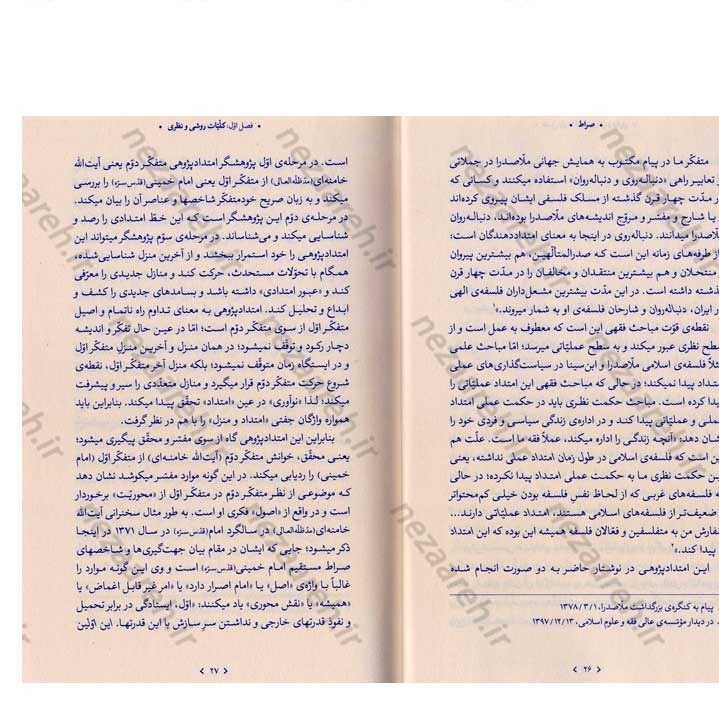 • صراط •
متفکّر ما در پیام مکتوب به همایش جهانی ملاصدرا در جملاتی
تعابیر راهی «دنباله‌روی و دنباله‌روان» استفاده میکنند و کسانی که
مدّت چهار قرن گذشته از مسلک فلسفی ایشان پیروی کرده‌اند
یا شارح و مفسّر و مروّج اندیشه‌های ملاصدرا بوده‌اند، دنباله‌روان
ملّاصدرا میدانند. دنباله‌روی در اینجا به معنای امتداددهندگان است؛
از طرفه‌های زمانه این است که صدرالمتألّهین، هم بیشترین پیروان
منتحلان و هم بیشترین منتقدان و مخالفان را در مدّت چهار قرن
گذشته داشته است. در این مدّت بیشترین مشعل‌داران فلسفه‌ی الهی
ایران، دنباله‌روان و شارحان فلسفه‌ی او به شمار میروند.»۱
نقطه‌ی قوّت مباحث فقهی این است که معطوف به عمل است و از
سطح نظری عبور میکند و به سطح عملیّاتی میرسد؛ امّا مباحث علمی
مثلاً فلسفه‌ی اسلامی ملاصدرا و ابن‌سینا در سیاست‌گذاری‌های عملی
امتداد پیدا نمیکند؛ در حالی که مباحث فقهی این امتداد عملیّاتی را
پیدا کرده است. مباحث حکمت نظری باید در حکمت عملی امتداد
عملی و عملیّاتی پیدا کند و در اداره‌ی زندگی سیاسی و فردی خود را
نشان دهد: «آنچه زندگی را اداره میکند، عملاً فقه ما است. علّت هم
این است که فلسفه‌ی اسلامی در طول زمان امتداد عملی نداشته، یعنی
این حکمت نظری ما به حکمت عملی امتداد پیدا نکرده؛ در حالی
که فلسفه‌های غربی که از لحاظ نفسِ فلسفه بودن خیلی کم‌محتواتر
ضعیف‌تر از فلسفه‌ی اسلامی هستند، امتداد عملیّاتی دارند...
سفارش من به متفلسفین و فعّالان فلسفه همیشه این بوده که این امتداد
پیدا کند.»۲
این امتدادپژوهی در نوشتار حاضر به دو صورت انجام شده
پیام به کنگره‌ی بزرگداشت ملاصدرا، ۱۳۷۸/۳/۱
در دیدار مؤسّسه‌ی عالی فقه و علوم اسلامی، ۱۳۹۷/۱۲/۱۳
‹ ۲۶ ›
• فصل اوّل: کلّیّات روشی و نظری •
است. در مرحله‌ی اوّل پژوهشگر امتدادپژوهی متفکّر دوّم یعنی آیت‌الله
خامنه‌ای (مدّظلّه‌العالی) از متفکّر اوّل یعنی امام خمینی (قدّس‌سرّه) را بررسی
میکند و به زبان صریح خودِ متفکّر شاخصها و عناصر آن را بیان میکند.
در مرحله‌ی دوّم این پژوهشگر است که این خطّ امتدادی را رصد و
شناسایی میکند و می‌شناساند. در مرحله‌ی سوّم پژوهشگر میتواند این
امتدادپژوهی را خود استمرار ببخشد و از آخرین منزل شناسایی‌شده،
همگام با تحوّلات مستحدث، حرکت کند و منازل جدیدی را معرّفی
کند و «عبور امتدادی» داشته باشد و بسامدهای جدیدی را کشف و
ابداع و تحلیل کند. امتدادپژوهی به معنای تداوم راه ناتمام و اصیل
متفکّر اوّل از سوی متفکّر دوّم است؛ امّا در عین حال تفکّر و اندیشه
دچار رکود و توقّف نمیشود؛ در همان منزل و آخرین منزلِ متفکّر اوّل
و در ایستگاه زمان متوقّف نمیشود؛ بلکه منزل آخر متفکّر اوّل، نقطه‌ی
شروع حرکت متفکّر دوّم قرار میگیرد و منازل متعدّدی را سیر و پیشرفت
میکند؛ لذا «نوآوری» در عین «امتداد» تحقّق پیدا میکند. بنابراین باید
همواره واژگان جفتیِ «امتداد و منزل» را با هم در نظر گرفت.
بنابراین این امتدادپژوهی گاه از سوی مفسّر و محقّق پیگیری میشود؛
یعنی محقّق، خوانش متفکّر دوّم (آیت‌الله خامنه‌ای) از متفکّر اوّل (امام
خمینی) را ردیابی میکند. در این گونه موارد مفسّر میکوشد نشان دهد
که موضوعی از نظر متفکّر دوّم در متفکّر اوّل از «محوریّت» برخوردار
است و در واقع از «اصول» فکری او است. به طور مثال سخنرانی آیت‌الله
خامنه‌ای (مدّظلّه‌العالی) در سالگرد امام (قدّس‌سرّه) در سال ۱۳۷۱ در اینجا
ذکر میشود؛ جایی که ایشان در مقام بیان جهت‌گیری‌ها و شاخصهای
صراط مستقیم امام خمینی (قدّس‌سرّه) است و وی این گونه موارد را
غالباً با واژه‌ی «اصل» یا «امام اصرار دارد» یا «امر غیر قابل اغماض» یا
«همیشه» یا «نقش محوری» یاد میکنند: «اوّل، ایستادگی در برابر تحمیل
و نفوذ قدرتهای خارجی و نداشتن سرِ سازش با این قدرتها. این اوّلین
‹ ۲۷ ›
nezaareh.ir
nezaareh.ir
nezaareh.ir
nezaareh.ir
nezaareh.ir
nezaareh.ir